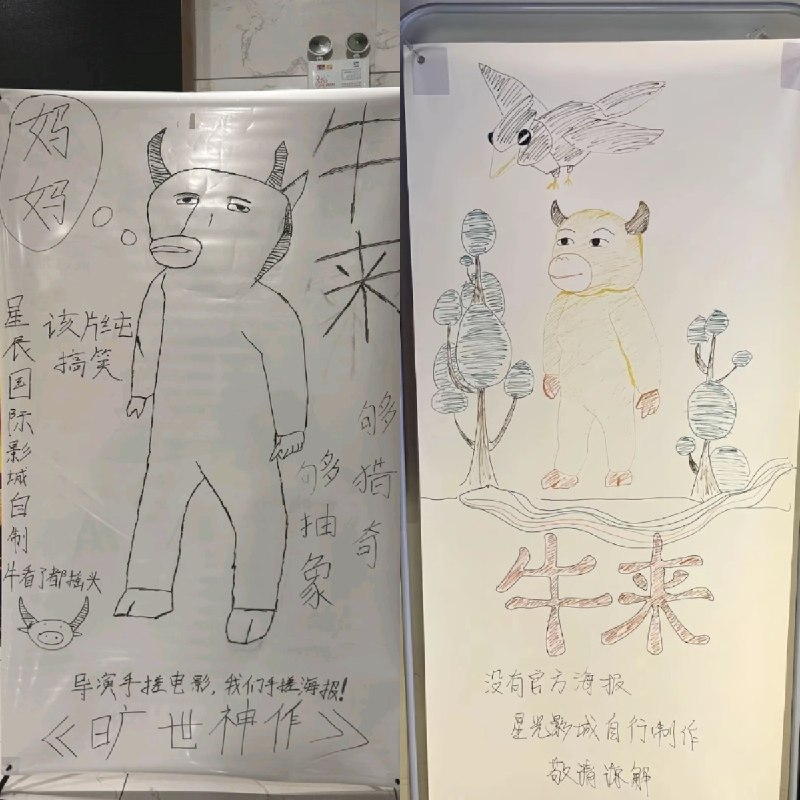 妈妈
牛来
星辰国际影城自制
该片纯
搞笑
够猎奇
够抽象
牛看了都摇头
导演手搓电影，我们手搓海报！
《旷世神作》
牛来
没有官方海报
星光影城自行制作
敬请谅解